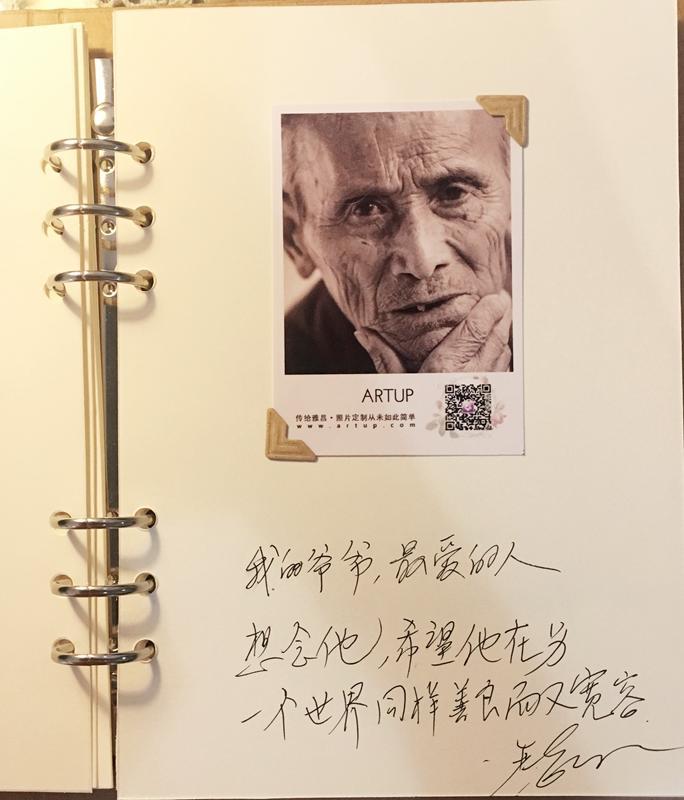 ARTUP
传给雅昌·照片定制从未如此简单
www.artup.com
我的爷爷,最爱的人
想念他,希望他在另
一个世界同样善良而又宽容.